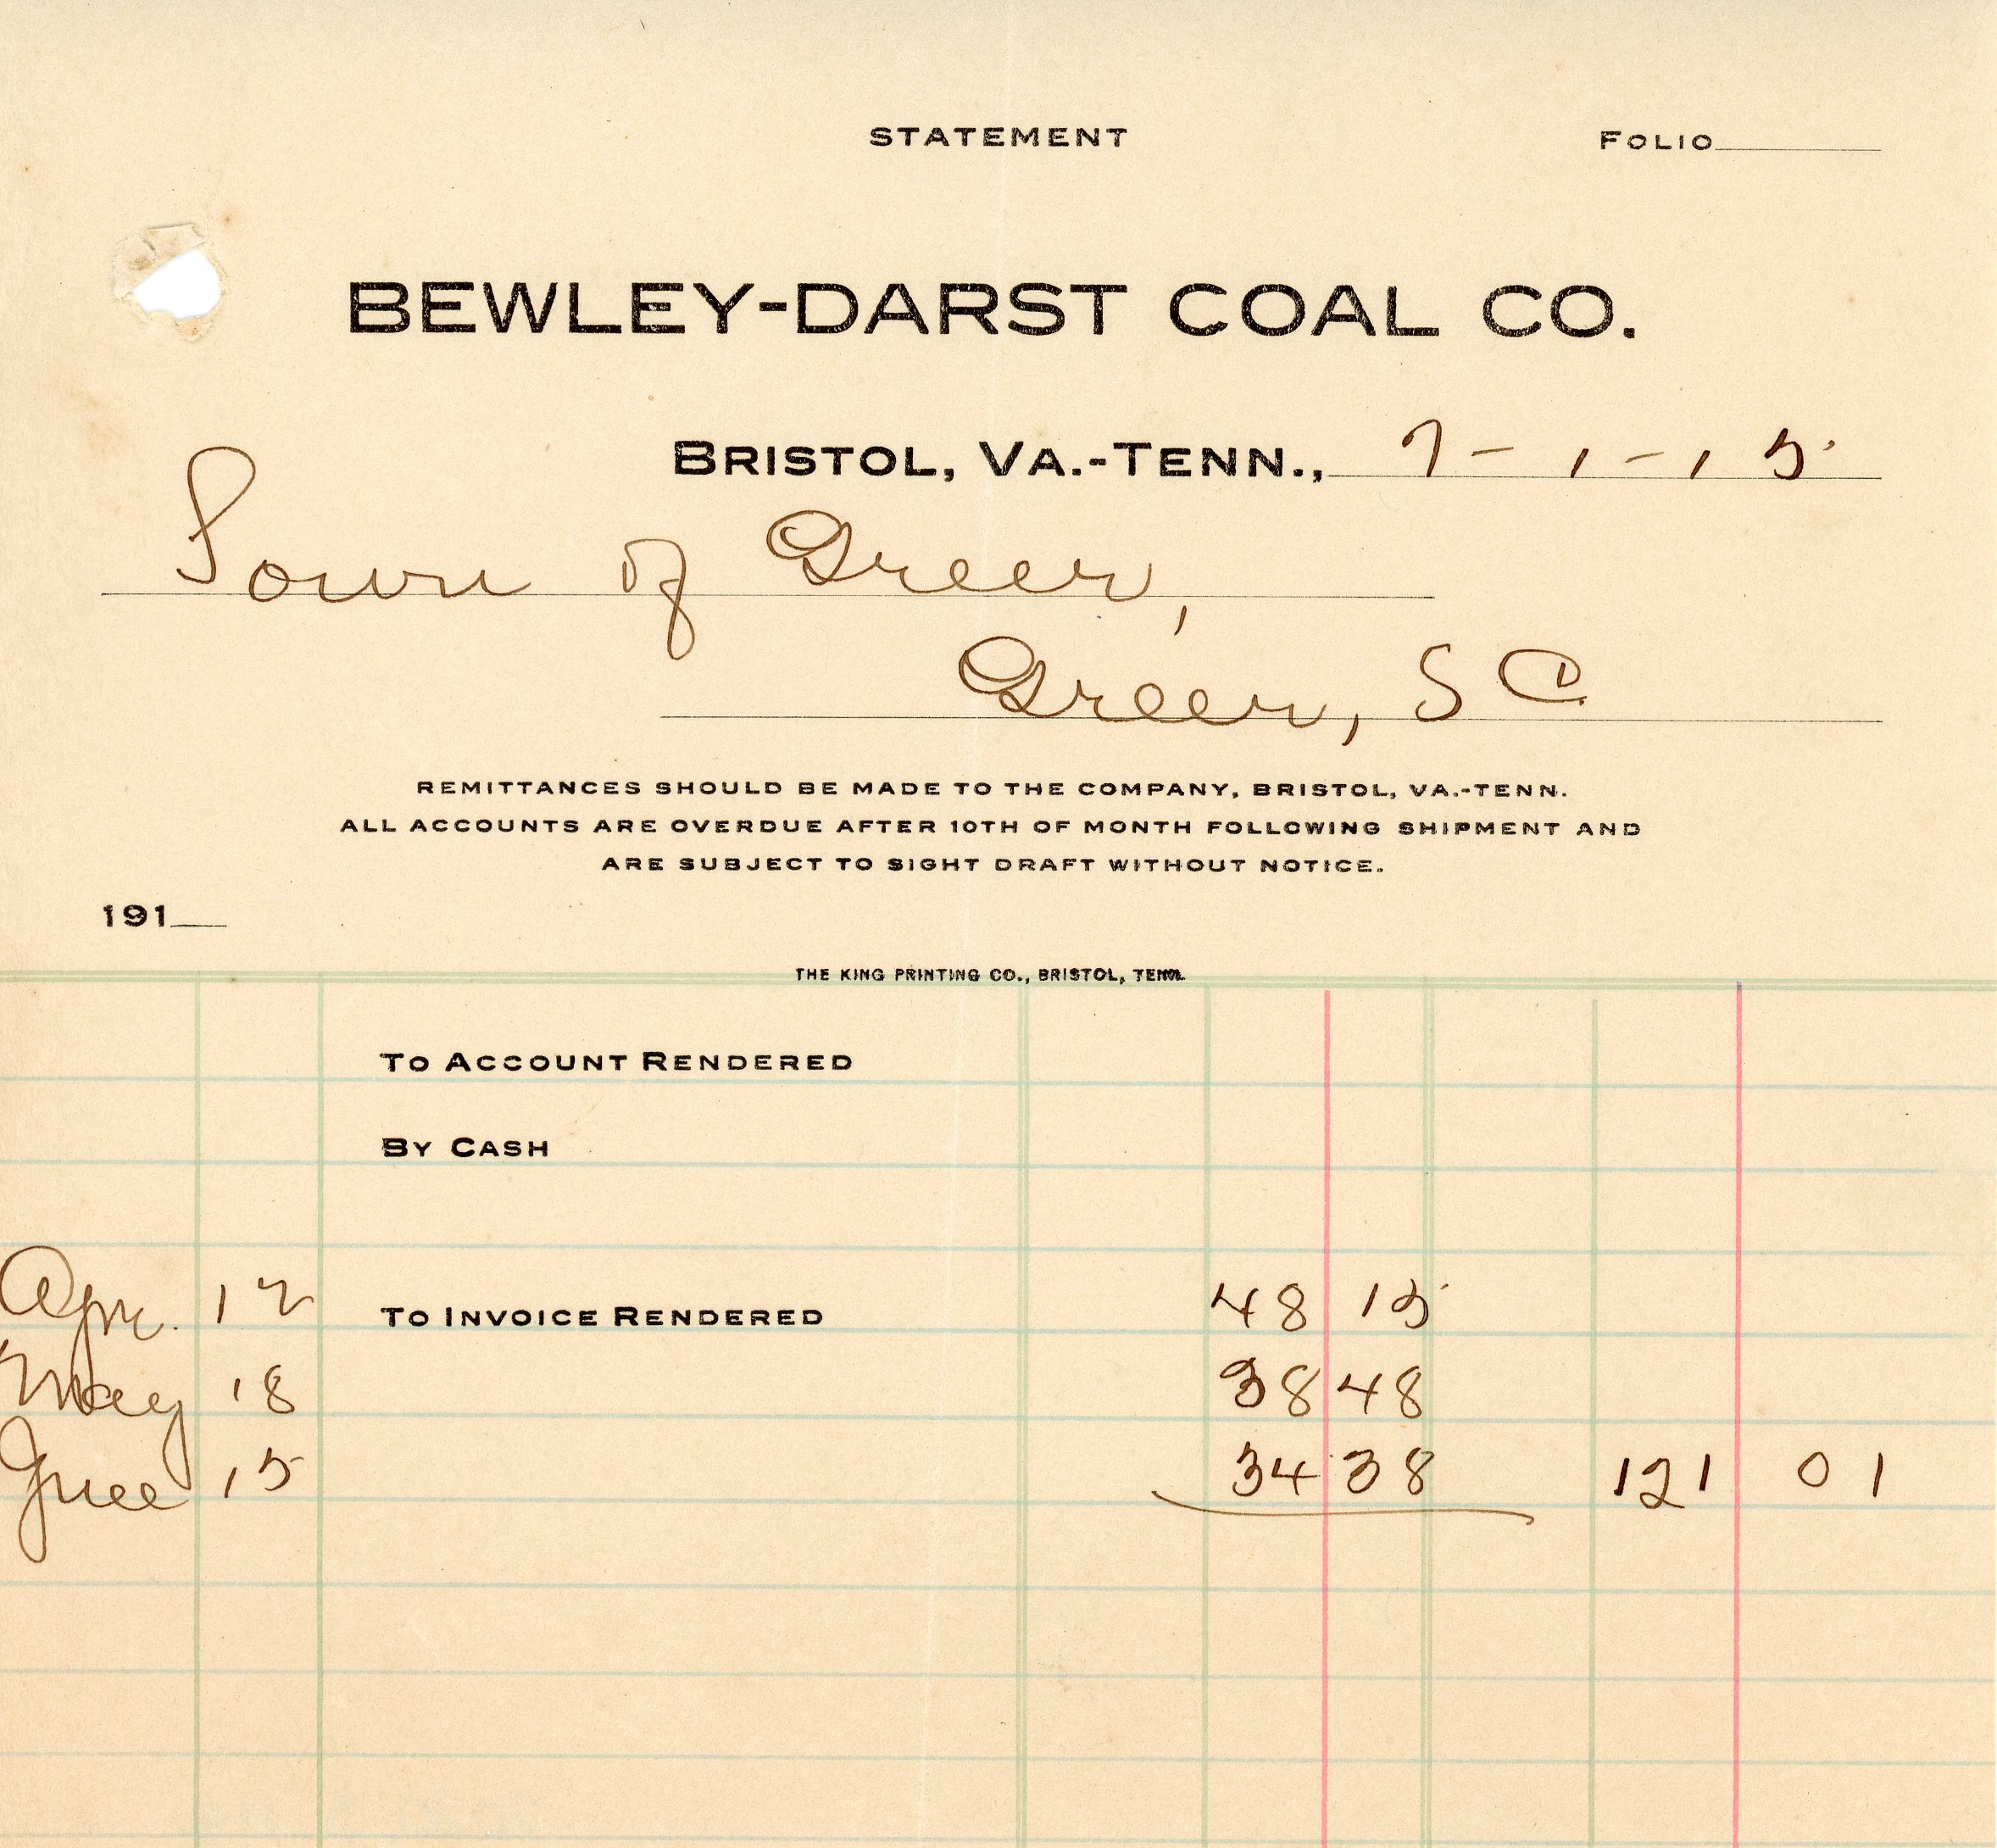 STATEMENT FOLIO
BEWLEY-DARST COAL CO.
BRISTOL, VA.-TENN., 7-1-15
Town of Greer,
Greer, S C
REMITTANCES SHOULD BE MADE TO THE COMPANY, BRISTOL, VA.-TENN.
ALL ACCOUNTS ARE OVERDUE AFTER 10TH OF MONTH FOLLOWING SHIPMENT AND
ARE SUBJECT TO SIGHT DRAFT WITHOUT NOTICE.
191
THE KING PRINTING CO., BRISTOL, TENN.
TO ACCOUNT RENDERED
BY CASH
Apr. 12 TO INVOICE RENDERED 48 15
May 18 38 48
June 15 34 38 121 01